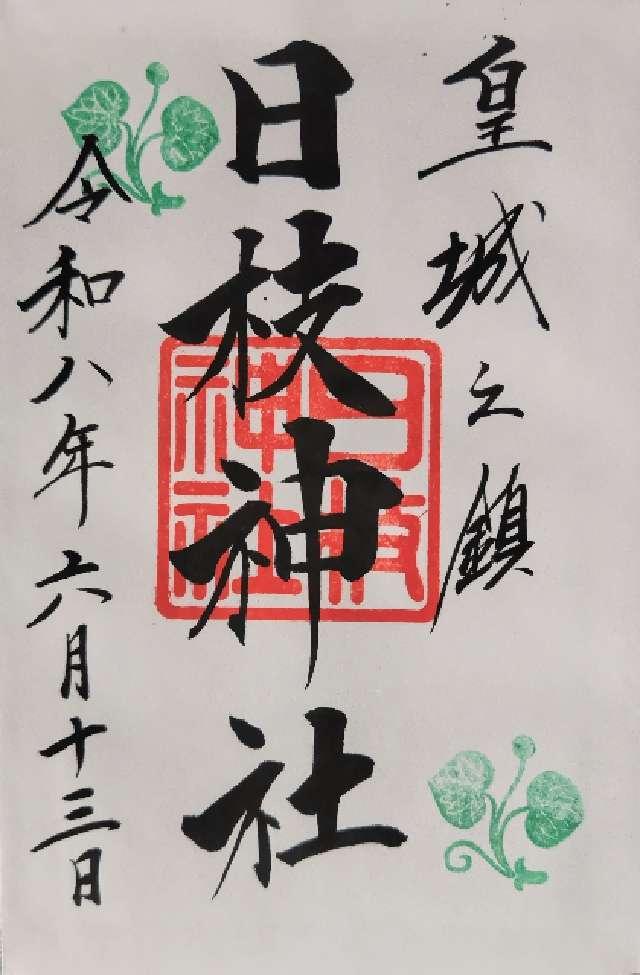 皇城之鎮
日枝神社
日枝神社
令和八年六月十三日